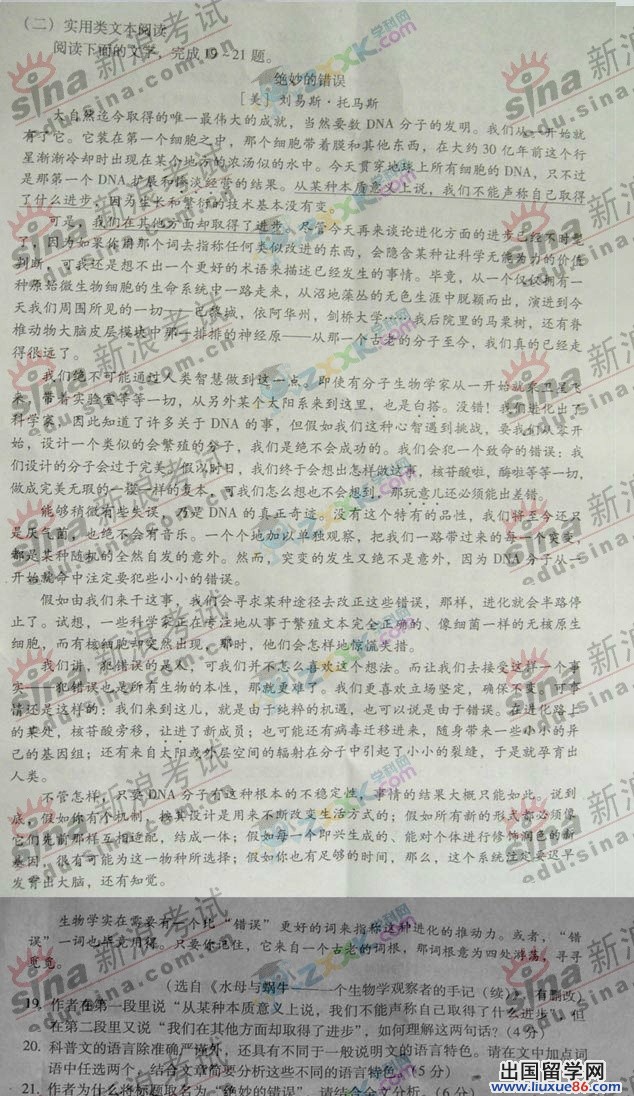 （二）实用类文本阅读
阅读下面的文字，完成19~21题。
绝妙的错误
［美］刘易斯·托马斯
大自然迄今取得的唯一最伟大的成就，当然要数DNA分子的发明。我们从一开始就
有了它。它装在第一个细胞之中，那个细胞带着膜和其他东西，在大约30亿年前这个行
星渐渐冷却时出现在某个地方的浓汤似的水中。今天贯穿地球上所有细胞的DNA，只不过
是那第一个DNA扩展和惨淡经营的结果。从某种本质意义上说，我们不能声称自己取得
了什么进步，因为生长和繁衍的技术基本没有变。
可是，我们在其他方面却取得了进步。尽管今天再来谈论进化方面的进步已经不时髦
了，因为如果你用那个词去指称任何类似改进的东西，会隐含某种让科学无能为力的价值
判断，可我还是想不出一个更好的术语来描述已经发生的事情。毕竟，从一个仅仅拥有一
种原始微生物细胞的生命系统中一路走来，从沼地藻丛的无色生涯中脱颖而出，演进到今
天我们周围所见的一切——巴黎城，依阿华州，剑桥大学……我后院里的马栗树，还有脊
椎动物大脑皮层模块中那一排排的神经原——从那一个古老的分子至今，我们真的已经走
得很远了。
我们绝不可能通过人类智慧做到这一点。即使有分子生物学家从一开始就乘卫星飞
来，带着实验室等等一切，从另外某个太阳系来到这里，也是白搭。没错！我们进化出了
科学家，因此知道了许多关于DNA的事，但假如我们这种心智遇到挑战，要我们从零开
始，设计一个类似的会繁殖的分子，我们是绝不会成功的。我们会犯一个致命的错误：我
们设计的分子会过于完美。假以时日，我们终于会想出怎样做这事，核苷酸啦，酶啦等等一切，
做成完美无瑕的一模一样的复本，可我们怎么想也不会想到，那玩意儿还必须能出差错。
能够稍微有些失误，乃是DNA的真正奇迹。没有这个特有的品性，我们将至今还只
是厌气菌，也绝不会有音乐。一个个地加以单独观察，把我们一路带过来的每一个突变，
都是某种随机的全然自发的意外。然而，突变的发生又绝不是意外，因为DNA分子从一
开始就命中注定要犯些小小的错误。
假如由我们来干这事，我们会寻求某种途径去改正这些错误，那样，进化就会半路停
止了。试想，一些科学家正在专注地从事于繁殖文本完全正确的、像细菌一样的无核原生
细胞，而有核细胞却突然出现，那时，他们会怎样地惊慌失措。
我们讲，犯错误的是人，可我们并不怎么喜欢这个想法。而让我们去接受这样一个事
实——犯错误也是所有生物的本性，那就更难了。我们更喜欢立场坚定，确保不变。可事
情还是这样的：我们来到这儿，就是由于纯粹的机遇，也可以说是由于错误。在进化路上
的某处，核苷酸旁移，让进了新成员；也可能还有病毒迁移进来，随身带来一些小小的异
己的基因组；还有来自太阳或外层空间的辐射在分子中引起了小小的裂缝，于是就孕育出
人类。
不管怎样，只要DNA分子有这种根本的不稳定性，事情的结果大概只能如此。说到
底，假如你有个机制，按其设计是用来不断改变生活方式的；假如所有新的形式都必须像
它们先前那样互相适配，结成一体；假如每一个即兴生成的、能对个体进行修饰润色的新
基因，很有可能为这一物种所选择；假如你也有足够的时间，那么，这个系统注定要迟早
发育出大脑，还有知觉。
生物学实在需要有一个比“错误”更好的词来指称这种进化的推动力。或者，“错
误”一词也毕竟用得。只要你记住，它来自一个古老的词根，那词根意为四处游荡，寻寻
觅觅。
（选自《水母与蜗牛——一个生物学观察者的手记（续）》，有删改）
19. 作者在第一段里说“从某种本质意义上说，我们不能声称自己取得了什么进步”，但
在第二段里又说“我们在其他方面却取得了进步”，如何理解这两句话？（4分）
20. 科普文的语言除准确严谨外，还具有不同于一般说明文的语言特色。请在文中加点词
语中任选两个，结合文章简要分析这些不同的语言特色。（5分）
21. 作者为什么将标题取名为“绝妙的错误”，请结合全文分析。（6分）
sina 新浪考试
edu.sina.com.cn
ZXXK.com 学科网
出国留学网
www.liuxue86.com